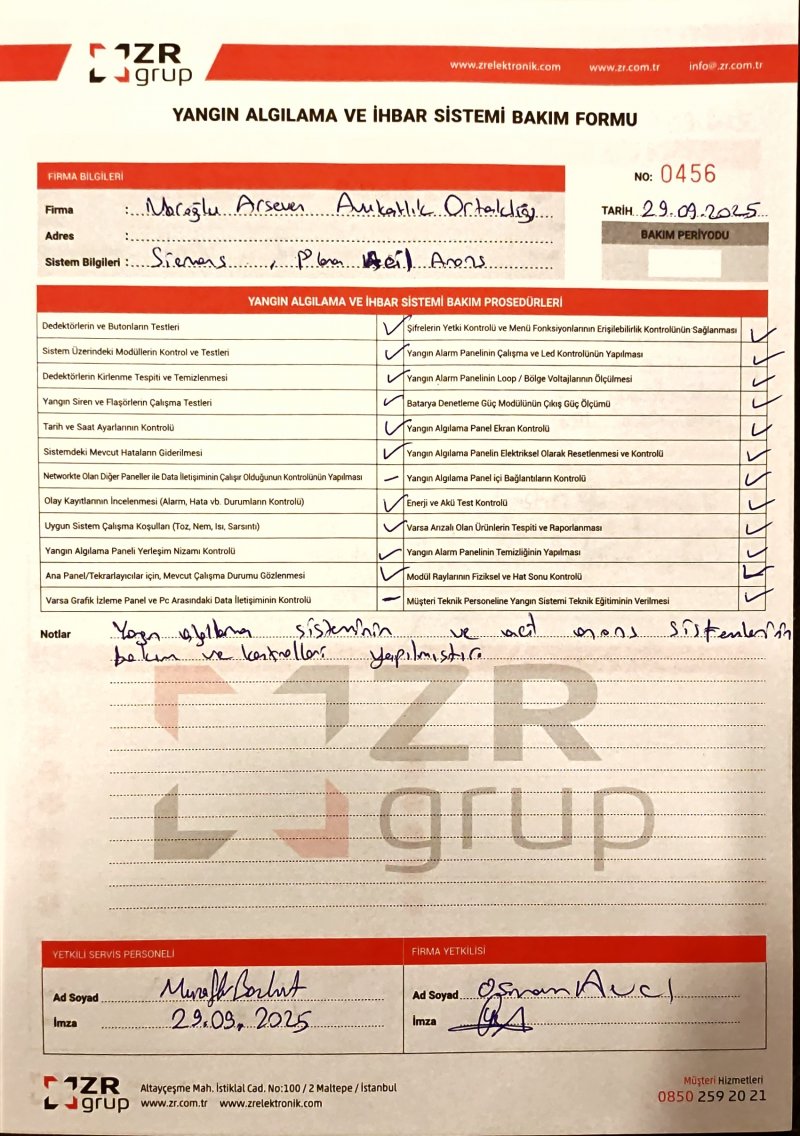 ZR grup
www.zrelektronik.com www.zr.com.tr info@.zr.com.tr
YANGIN ALGILAMA VE İHBAR SİSTEMİ BAKIM FORMU
FİRMA BİLGİLERİ
NO: 0456
Firma : Moroğlu Arseven Avukatlık Ortaklığı
TARİH 29.09.2025
Adres :
BAKIM PERİYODU
Sistem Bilgileri : Siemens , Acil Anons
YANGIN ALGILAMA VE İHBAR SİSTEMİ BAKIM PROSEDÜRLERİ
Dedektörlerin ve Butonların Testleri ✓ Şifrelerin Yetki Kontrolü ve Menü Fonksiyonlarının Erişilebilirlik Kontrolünün Sağlanması ✓
Sistem Üzerindeki Modüllerin Kontrol ve Testleri ✓ Yangın Alarm Panelinin Çalışma ve Led Kontrolünün Yapılması ✓
Dedektörlerin Kirlenme Tespiti ve Temizlenmesi ✓ Yangın Alarm Panelinin Loop / Bölge Voltajlarının Ölçülmesi ✓
Yangın Siren ve Flaşörlerın Çalışma Testleri ✓ Batarya Denetleme Güç Modülünün Çıkış Güç Ölçümü ✓
Tarih ve Saat Ayarlarının Kontrolü ✓ Yangın Algılama Panel Ekran Kontrolü ✓
Sistemdeki Mevcut Hataların Giderilmesi ✓ Yangın Algılama Panelin Elektriksel Olarak Resetlenmesi ve Kontrolü ✓
Networkte Olan Diğer Paneller ile Data İletişiminin Çalışır Olduğunun Kontrolünün Yapılması – Yangın Algılama Panel içi Bağlantıların Kontrolü ✓
Olay Kayıtlarının İncelenmesi (Alarm, Hata vb. Durumların Kontrolü) ✓ Enerji ve Akü Test Kontrolü ✓
Uygun Sistem Çalışma Koşulları (Toz, Nem, Isı, Sarsıntı) ✓ Varsa Arızalı Olan Ürünlerin Tespiti ve Raporlanması ✓
Yangın Algılama Paneli Yerleşim Nizamı Kontrolü ✓ Yangın Alarm Panelinin Temizliğinin Yapılması ✓
Ana Panel/Tekrarlayıcılar için, Mevcut Çalışma Durumu Gözlenmesi ✓ Modül Raylarının Fiziksel ve Hat Sonu Kontrolü ✓
Varsa Grafik İzleme Panel ve Pc Arasındaki Data İletişiminin Kontrolü – Müşteri Teknik Personeline Yangın Sistemi Teknik Eğitiminin Verilmesi ✓
Notlar Yangın algılama sisteminin ve acil anons sistemlerinin
bakım ve kontrolleri yapılmıştır.
ZR
grup
YETKİLİ SERVİS PERSONELİ
FİRMA YETKİLİSİ
Ad Soyad
Ad Soyad Osman Avcı
İmza 29.09.2025
İmza
ZR grup
Altayçeşme Mah. İstiklal Cad. No:100 / 2 Maltepe / İstanbul
www.zr.com.tr www.zrelektronik.com
Müşteri Hizmetleri
0850 259 20 21